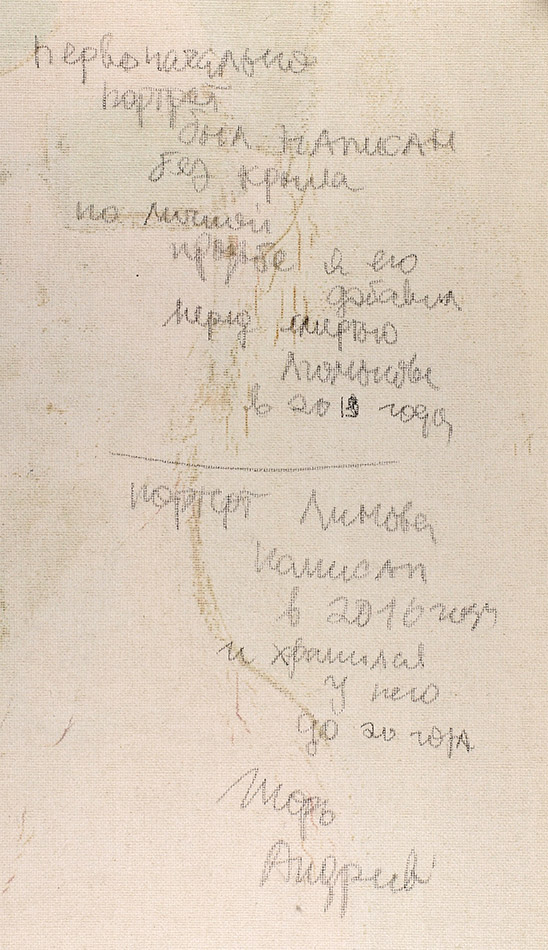 Первоначально
портрет
был написан
без крыла
по личной
просьбе я его
добавил
перед смертью
Лимонова
в 2019 году
портерт Лимова
написан
в 2016 году
и хранился
у него
до 20 года
Игорь
Андреев